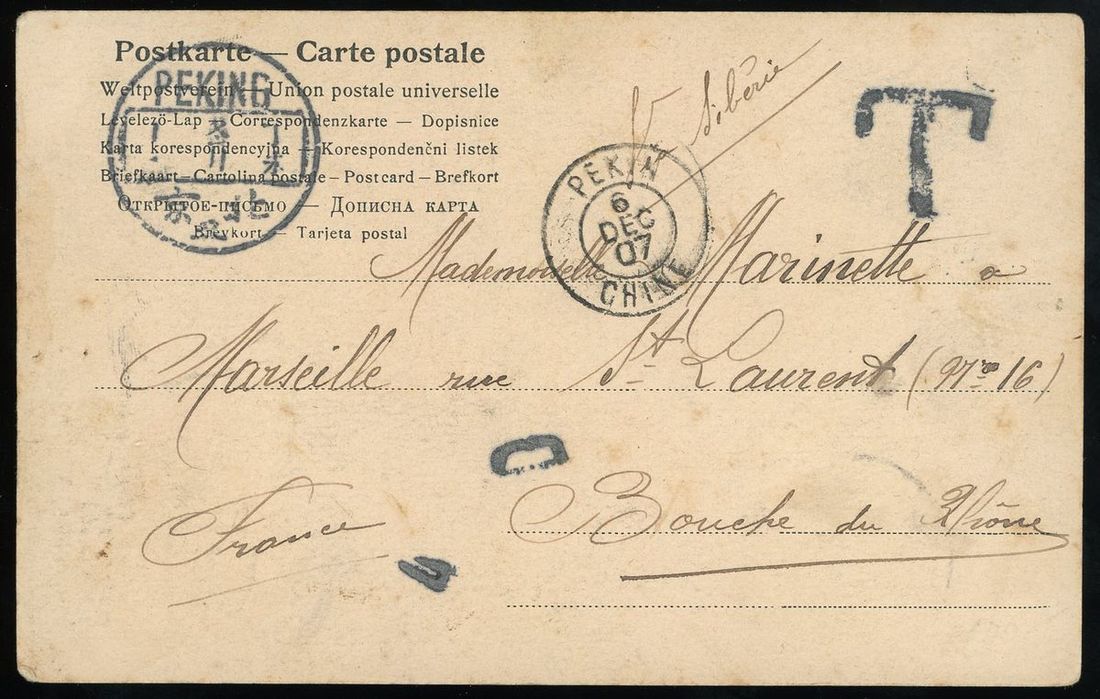 Postkarte — Carte postale
Weltpostverein — Union postale universelle
Levelezö-Lap — Correspondenzkarte — Dopisnice
Karta korespondencyjna — Korespondenční listek
Briefkaart — Cartolina postale — Post card — Brefkort
Открытое-письмо — Дописна карта
Brevkort — Tarjeta postal
PEKING
北
V. Sibérie
T
PEKIN
6
DEC
07
CHINE
Mademoiselle Marinette a
Marseille rue St Laurent (Nro 16)
France
Bouche du Rhône